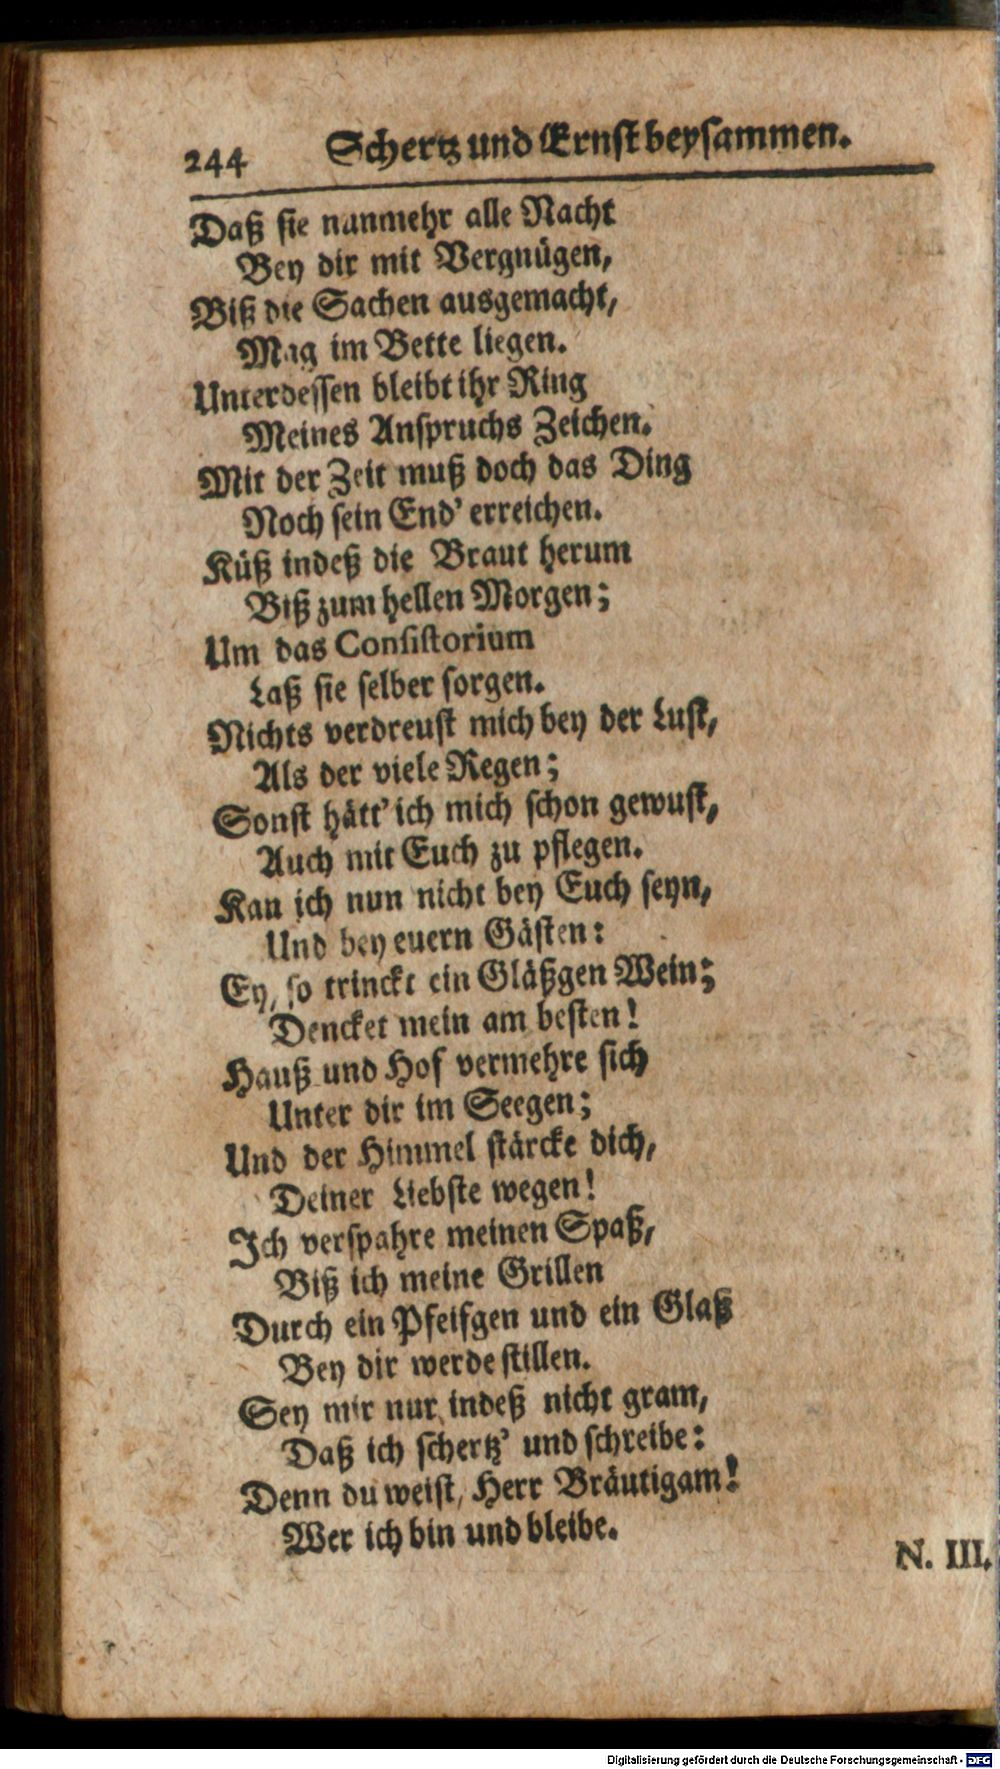 244 Schertz und Ernst beysammen.
Daß sie nunmehr alle Nacht
Bey dir mit Vergnügen,
Biß die Sachen ausgemacht,
Mag im Bette liegen.
Unterdessen bleibt ihr Ring
Meines Anspruchs Zeichen.
Mit der Zeit muß doch das Ding
Noch sein End' erreichen.
Küß indeß die Braut herum
Biß zum hellen Morgen;
Um das Consistorium
Laß sie selber sorgen.
Nichts verdreust mich bey der Lust,
Als der viele Regen;
Sonst hätt' ich mich schon gewust,
Auch mit Euch zu pflegen.
Kan ich nun nicht bey Euch seyn,
Und bey euern Gästen:
Ey, so trinckt ein Gläßgen Wein;
Dencket mein am besten!
Hauß und Hof vermehre sich
Unter dir im Seegen;
Und der Himmel stärcke dich,
Deiner Liebste wegen!
Ich verspahre meinen Spaß,
Biß ich meine Grillen
Durch ein Pfeifgen und ein Glaß
Bey dir werde stillen.
Sey mir nur indeß nicht gram,
Daß ich schertz' und schreibe:
Denn du weist, Herr Bräutigam!
Wer ich bin und bleibe.
N. III.
Digitalisierung gefördert durch die Deutsche Forschungsgemeinschaft - DFG